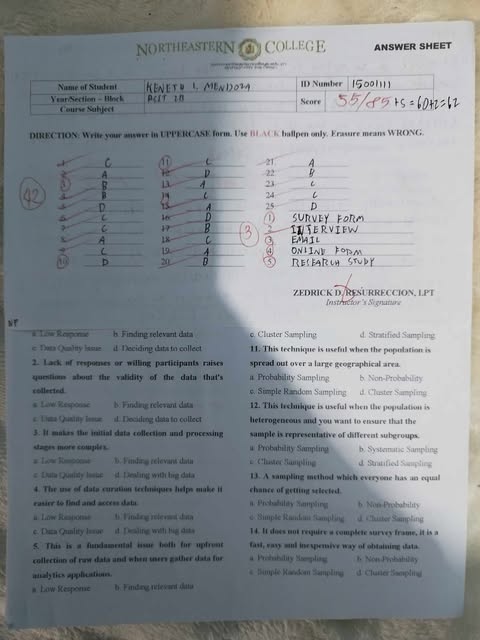 NORTHEASTERN COLLEGE
ANSWER SHEET
Name of Student KENETH I. MENDOZA
ID Number 15001111
Year/Section – Block BCIT 2B
Course Subject
Score 55/85 +5=60+2=62
DIRECTION: Write your answer in UPPERCASE form. Use BLACK ballpen only. Erasure means WRONG.
42
1 C
2 A
3 B
4 B
5 D
6 C
7 C
8 A
9 C
10 D
11 C
12 D
13 A
14 C
15 A
16 D
17 B
18 C
19 A
20 B
21. A
22 B
23 C
24 C
25 D
3
1 SURVEY FORM
2 INTERVIEW
3 EMAIL
4 ONLINE FORM
5 RESEARCH STUDY
ZEDRICK D. RESURRECCION, LPT
Instructor's Signature
a. Low Response b. Finding relevant data
c. Data Quality Issue d. Deciding data to collect
2. Lack of responses or willing participants raises
questions about the validity of the data that's
collected.
a. Low Response b. Finding relevant data
c. Data Quality Issue d. Deciding data to collect
3. It makes the initial data collection and processing
stages more complex.
a. Low Response b. Finding relevant data
c. Data Quality Issue d. Dealing with big data
4. The use of data curation techniques helps make it
easier to find and access data.
a. Low Response b. Finding relevant data
c. Data Quality Issue d. Dealing with big data
5. This is a fundamental issue both for upfront
collection of raw data and when users gather data for
analytics applications.
a. Low Response b. Finding relevant data
c. Cluster Sampling d. Stratified Sampling
11. This technique is useful when the population is
spread out over a large geographical area.
a. Probability Sampling b. Non-Probability
c. Simple Random Sampling d. Cluster Sampling
12. This technique is useful when the population is
heterogeneous and you want to ensure that the
sample is representative of different subgroups.
a. Probability Sampling b. Systematic Sampling
c. Cluster Sampling d. Stratified Sampling
13. A sampling method which everyone has an equal
chance of getting selected.
a. Probability Sampling b. Non-Probability
c. Simple Random Sampling d. Cluster Sampling
14. It does not require a complete survey frame, it is a
fast, easy and inexpensive way of obtaining data.
a. Probability Sampling b. Non-Probability
c. Simple Random Sampling d. Cluster Sampling